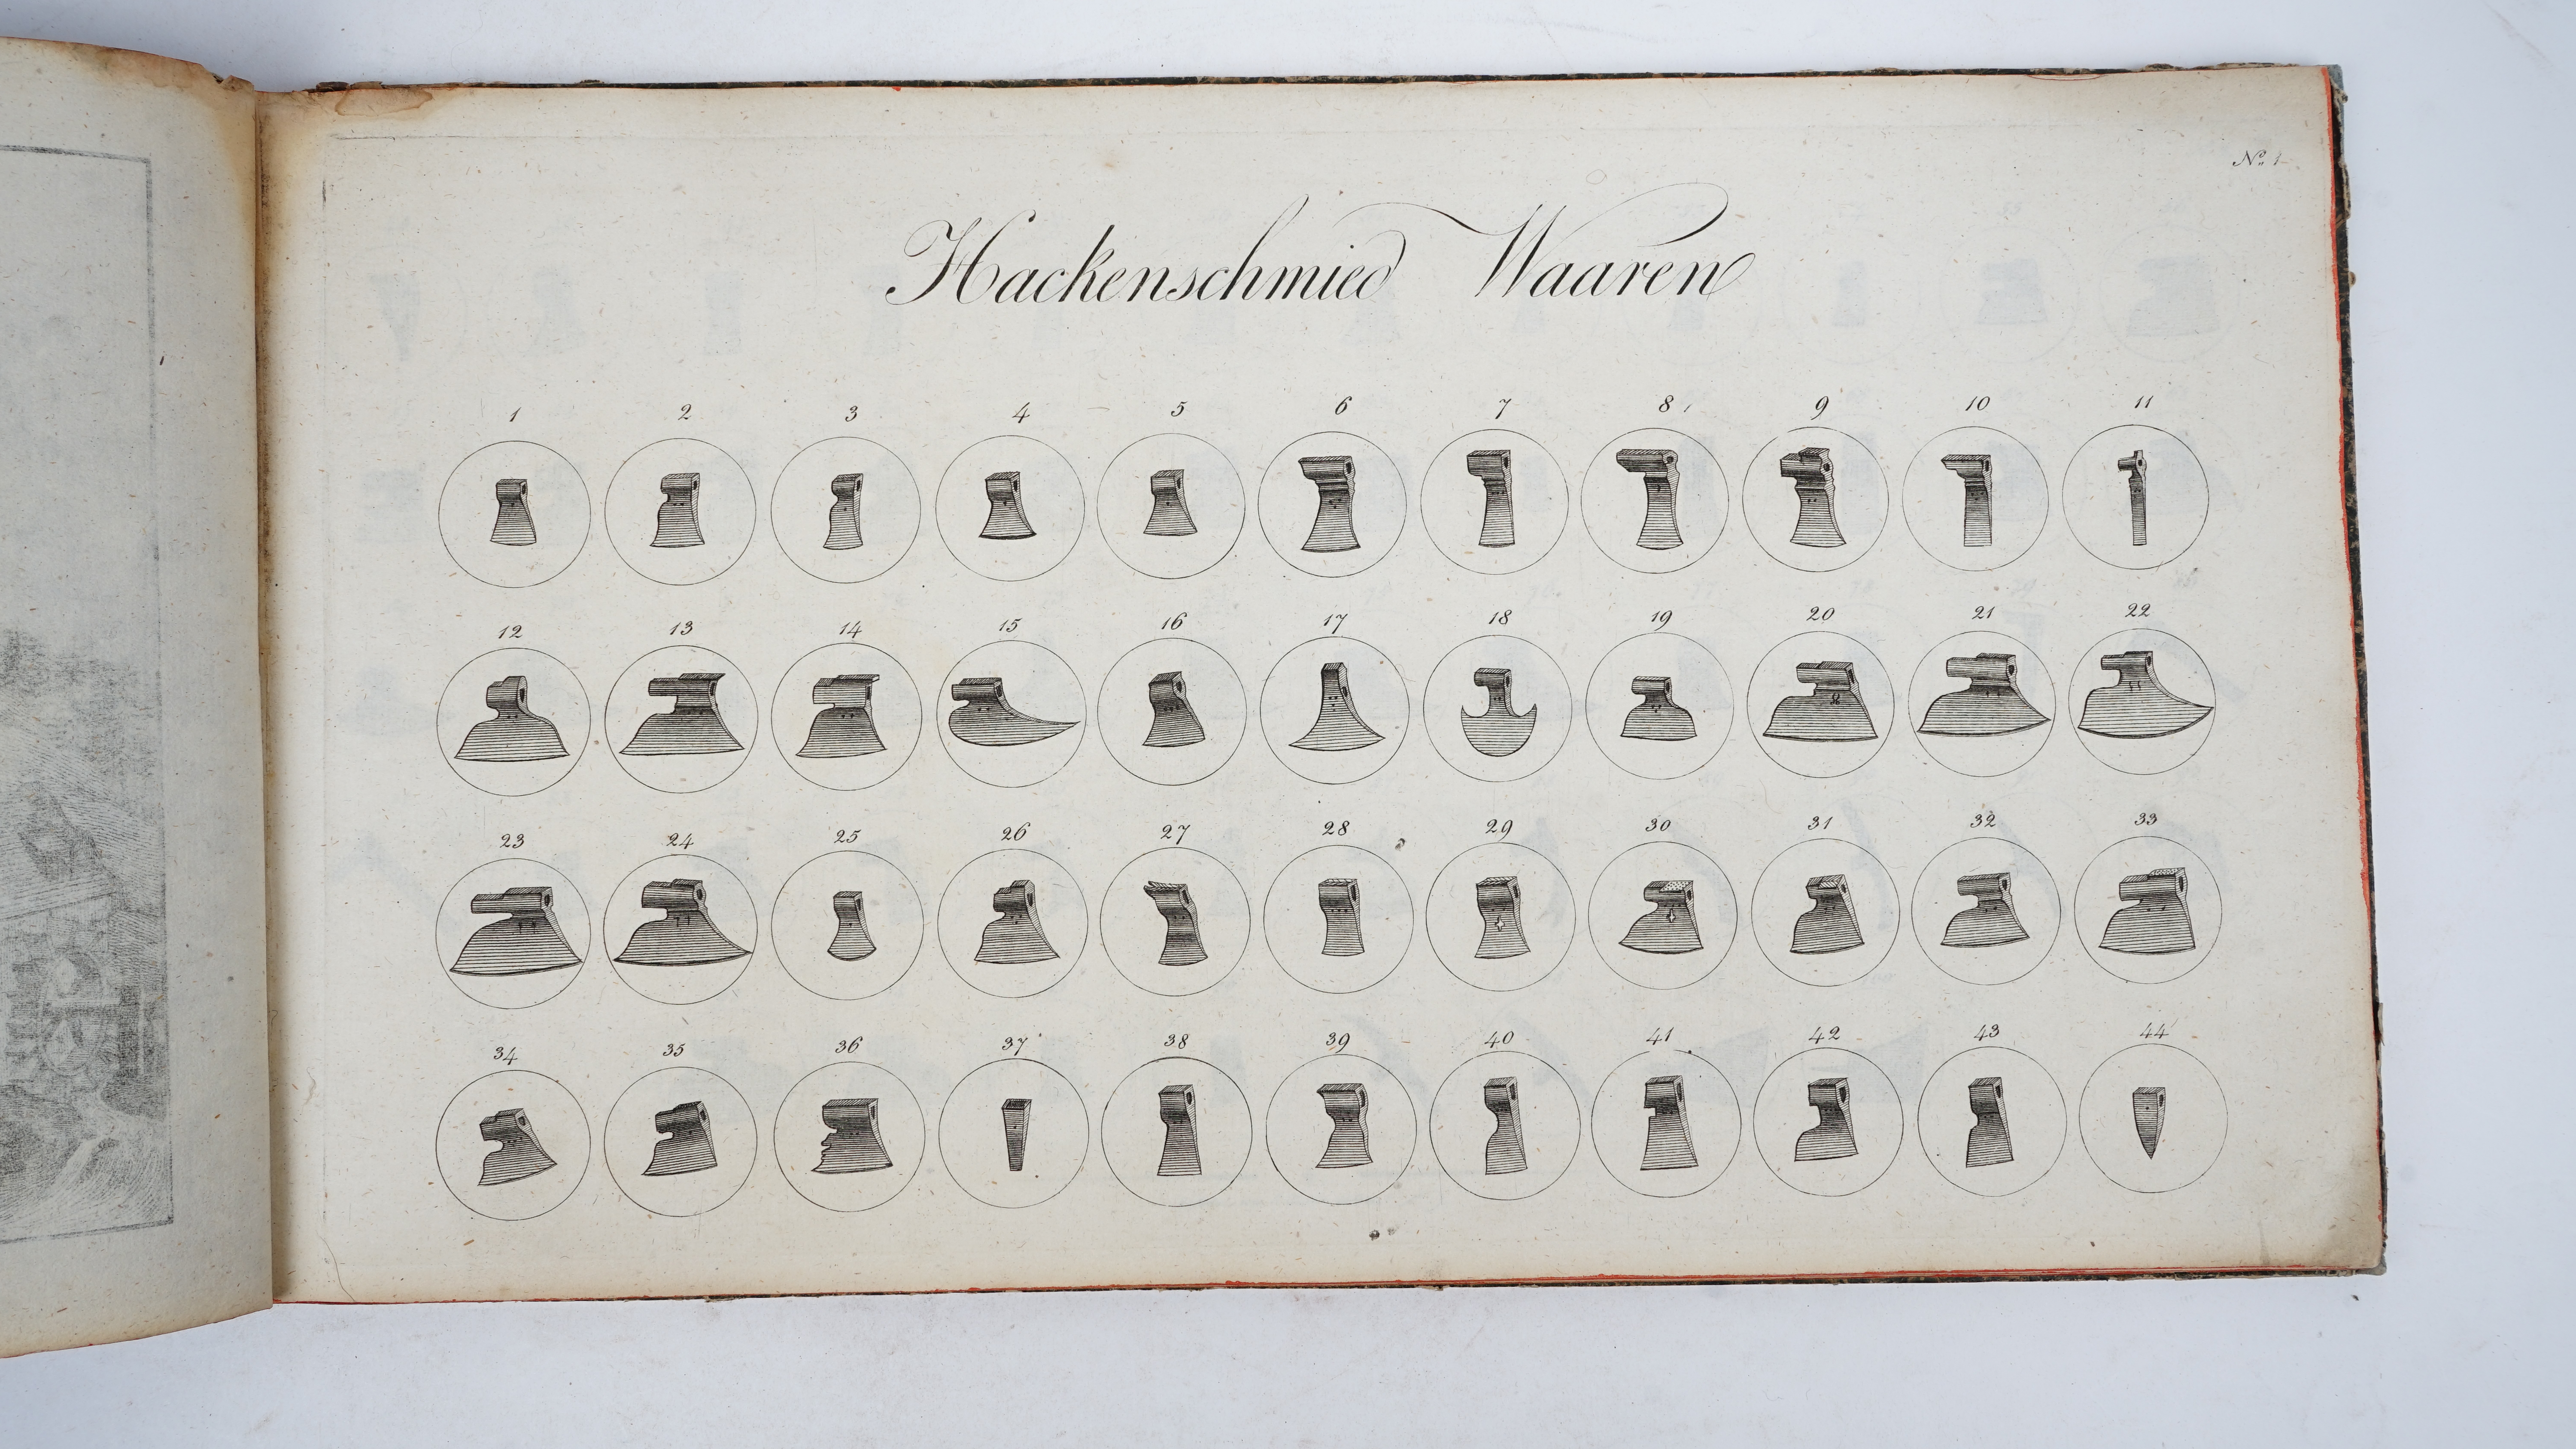 Nº 1
Hackenschmied Waaren
1 2 3 4 5 6 7 8 9 10 11
12 13 14 15 16 17 18 19 20 21 22
23 24 25 26 27 28 29 30 31 32 33
34 35 36 37 38 39 40 41 42 43 44